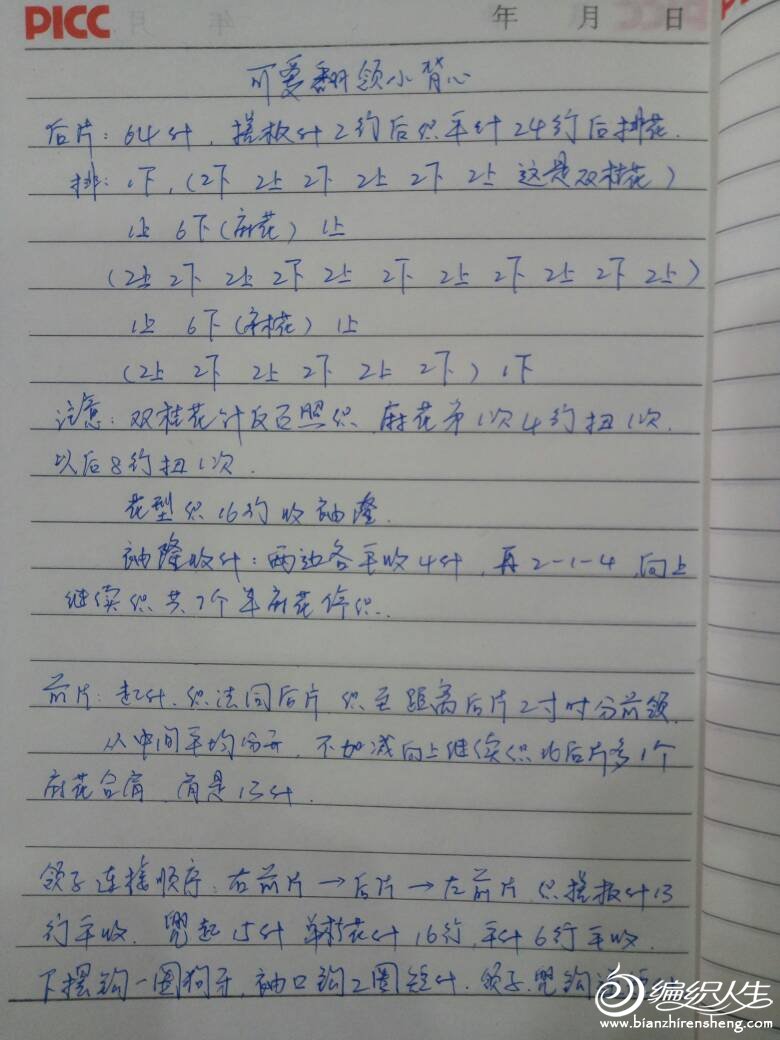 PICC
年 月 日
可爱翻领小背心
后片：64针，搓板针2行后织平针24行后排花.
排：1下，(2下 2上 2下 2上 2下 2上 这是双桂花)
1上 6下(麻花) 1上
(2上 2下 2上 2下 2上 2下 2上 2下 2上 2下 2上)
1上 6下(麻花) 1上
(2上 2下 2上 2下 2上 2下) 1下
注意：双桂花针反面照织，麻花第1次4行扭1次.
以后8行扭1次.
花型织16行收袖隆.
袖隆收针：两边各平收4针，再2-1-4，向上
继续织共7个半麻花停织.
前片：起针.织法同后片，织至距离后片2寸时分前领.
从中间平均分开，不加减向上继续织比后片多1个
麻花合肩，肩是13针.
领子连接顺序：右前片→后片→左前片，织搓板针13
行平收. 兜起15针 单桂花针16行，平针6行平收.
下摆钩一圈狗牙，袖口钩2圈短针.领子.兜钩
编织人生
www.bianzhirensheng.com